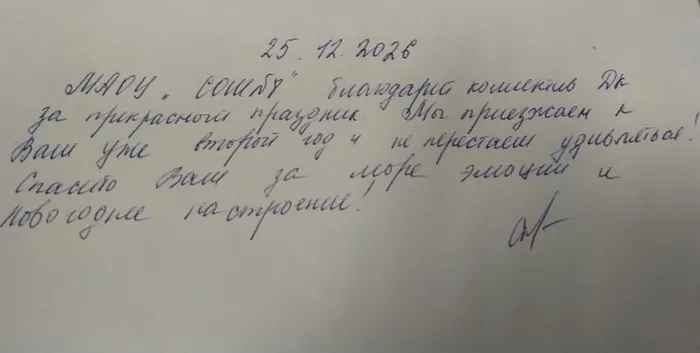 25.12.2026
МАОУ "СОШ №8" благодарит коллектив ДК
за прекрасный праздник. Мы приезжаем к
Вам уже второй год и не перестаем удивляться!
Спасибо Вам за море эмоций и
Новогоднее настроение!